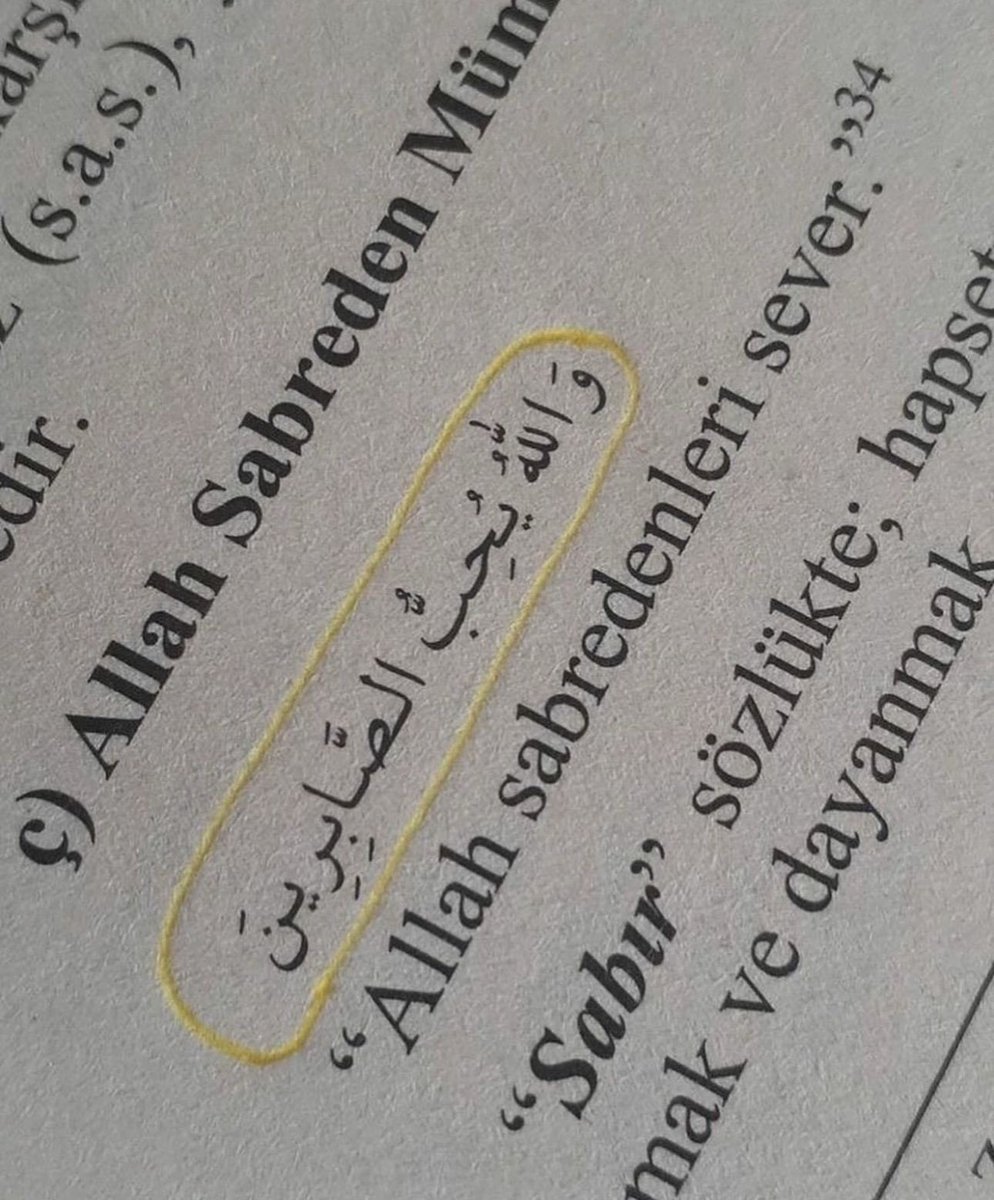 (s.a.s.),
ç) Allah Sabreden Müm
وَاللّٰهُ يُحِبُّ الصَّابِرِينَ
“Allah sabredenleri sever.”34
“Sabır” sözlükte; hapset
mak ve dayanmak